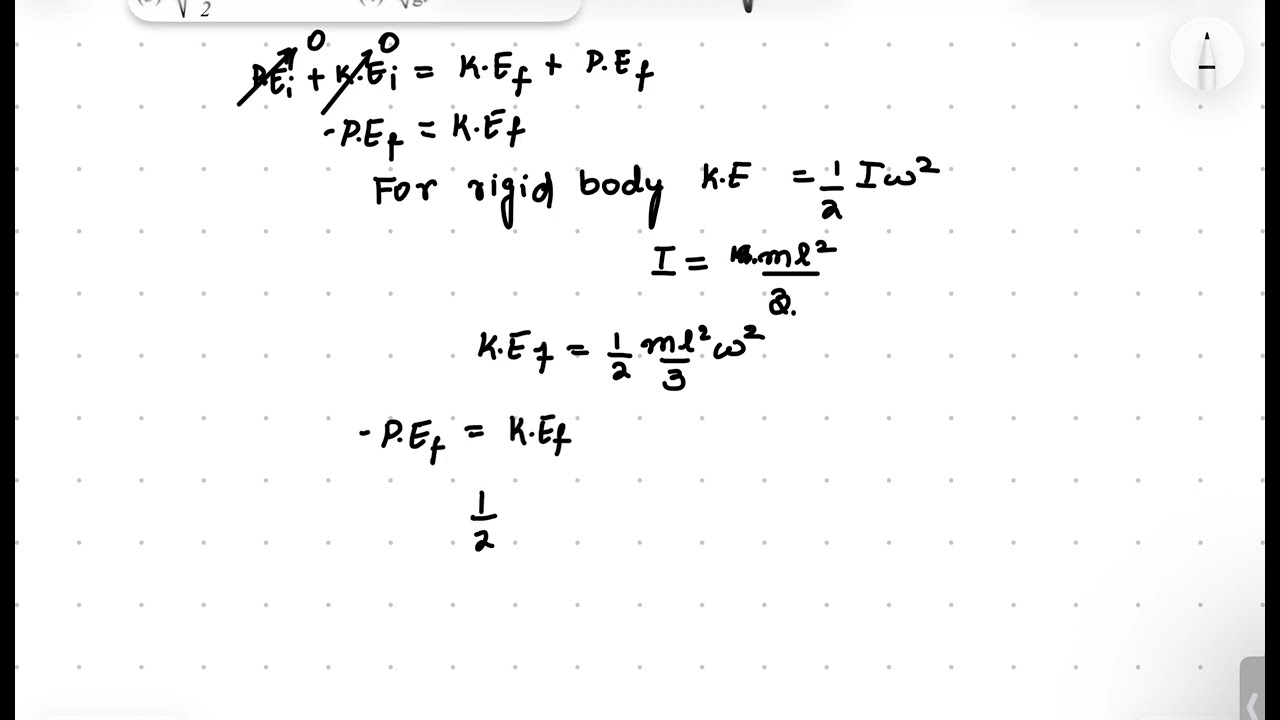 2
P.Eᵢ + K.Eᵢ = K.E_f + P.E_f
0 0
-P.E_f = K.E_f
For rigid body K.E = 1/2 Iω²
I = ml²/3
K.E_f = 1/2 ml²/3 ω²
-P.E_f = K.E_f
1/2